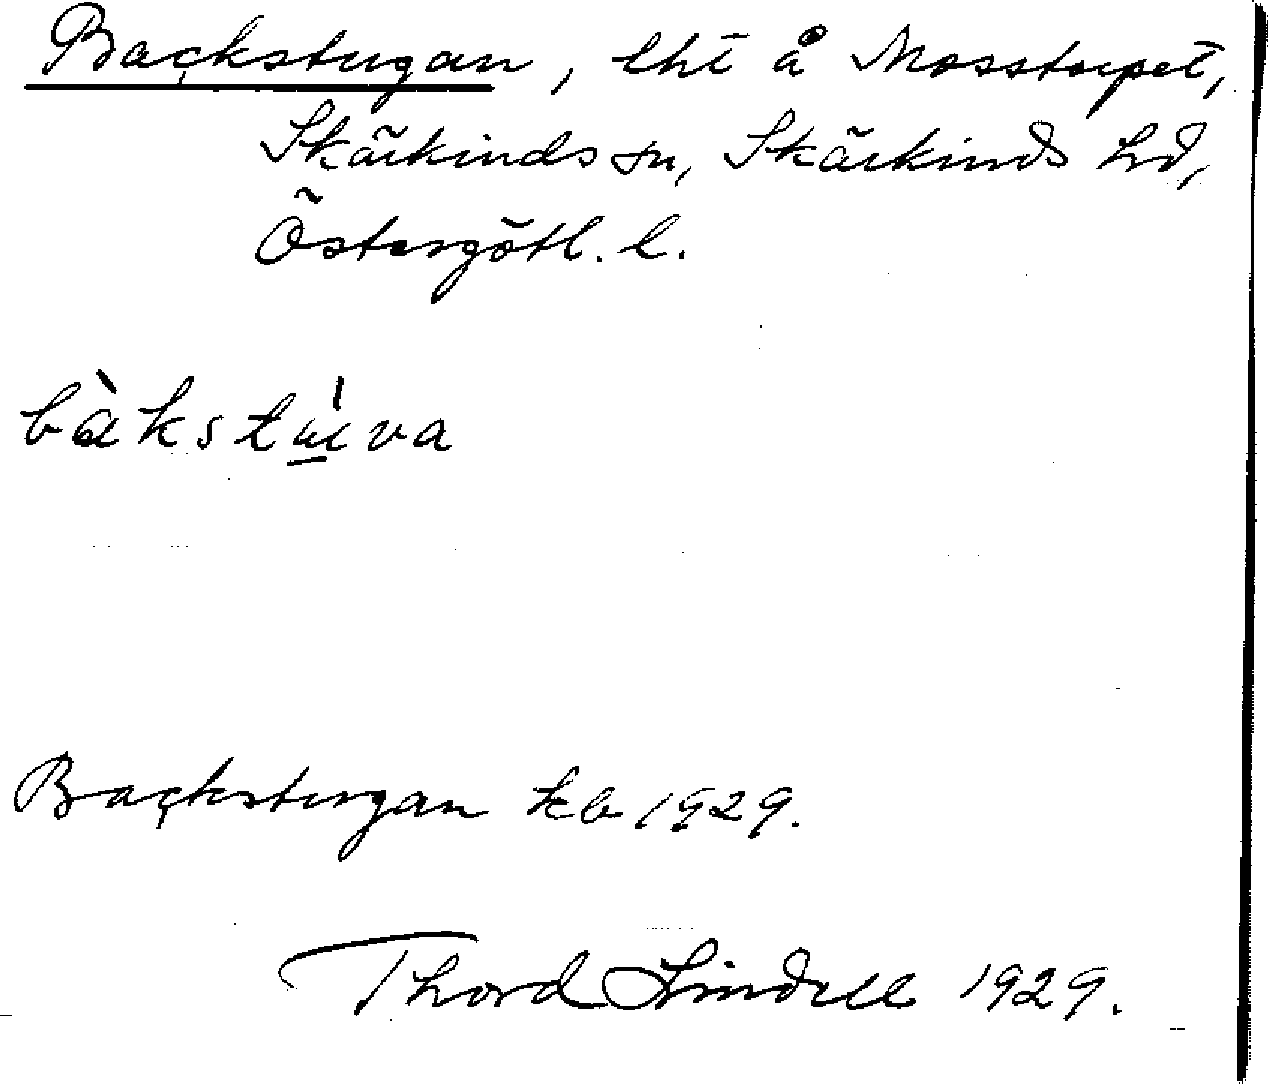 Backstugan, lht å Mosstorpet,
Skärkinds sn, Skärkinds hd,
Östergötl. l.
bàkstú̲va
Backstugan kb 1929.
Thord Lindell 1929.